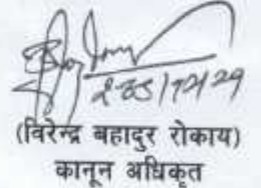 (विरेन्द्र बहादुर रोकाय)
कानून अधिकृत